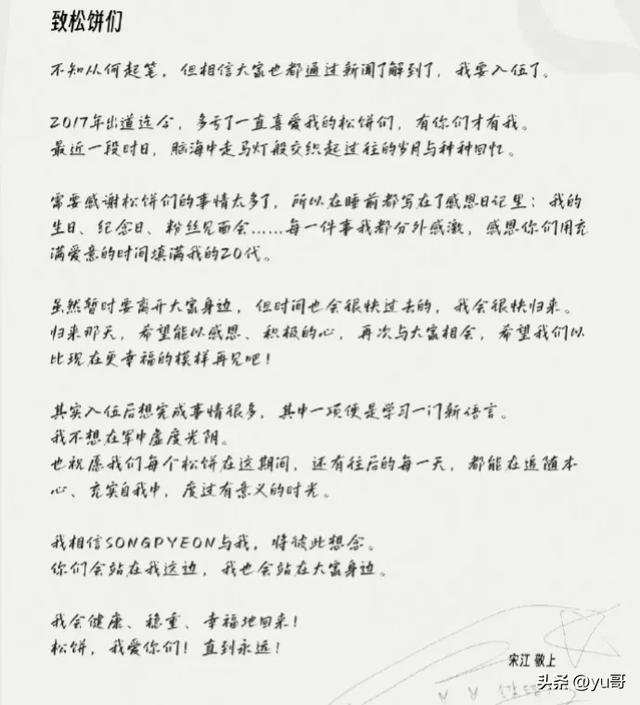 致松饼们
不知从何起笔，但相信大家也都通过新闻了解到了，我要入伍了。
2017年出道迄今，多亏了一直喜爱我的松饼们，有你们才有我。
最近一段时日，脑海中走马灯般交织起过往的岁月与种种回忆。
需要感谢松饼们的事情太多了，所以在睡前都写在了感恩日记里：我的
生日、纪念日、粉丝见面会……每一件事我都分外感激，感恩你们用充
满爱意的时间填满我的20代。
虽然暂时要离开大家身边，但时间也会很快过去的，我会很快归来。
归来那天，希望能以感恩、积极的心，再次与大家相会，希望我们以
比现在更幸福的模样再见吧！
其实入伍后想完成事情很多，其中一项便是学习一门新语言。
我不想在军中虚度光阴。
也祝愿我们每个松饼在这期间，还有往后的每一天，都能在追随本
心、充实自我中，度过有意义的时光。
我相信SONGPYEON与我，将彼此想念。
你们会站在我这边，我也会站在大家身边。
我会健康、稳重、幸福地回来！
松饼，我爱你们！直到永远！
宋江 敬上
头条 @yu哥